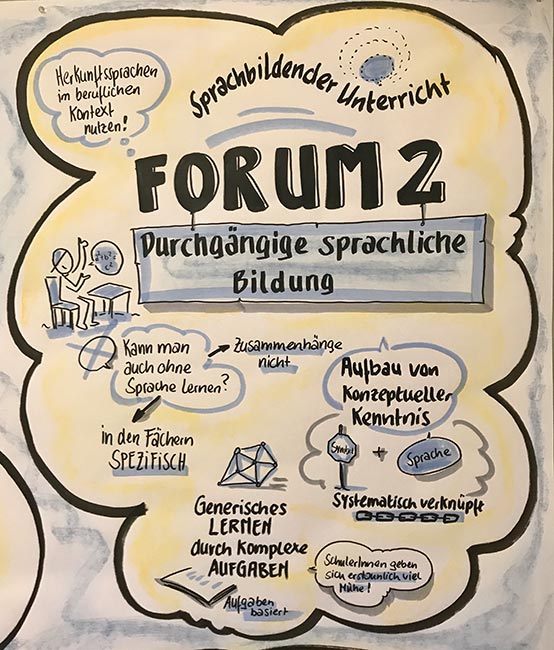 Herkunftssprachen
im beruflichen
Kontext
nutzen!
Sprachbildender Unterricht
FORUM 2
Durchgängige sprachliche
Bildung
a²+b²=
c²
Kann man
auch ohne
Sprache Lernen?
Zusammenhänge
nicht
in den Fächern
SPEZIFISCH
Aufbau von
Konzeptueller
Kenntnis
Symbol
+
Sprache
Systematisch verknüpft
Generisches
LERNEN
durch Komplexe
AUFGABEN
Aufgaben
basiert
SchülerInnen geben
sich erstaunlich viel
Mühe!